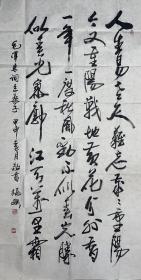 人生易老天難老歲歲重陽
今又重陽戰地黃花分外香
一年一度秋風勁不似春光勝
似春光寥廓江天萬里霜
毛澤東詞采桑子